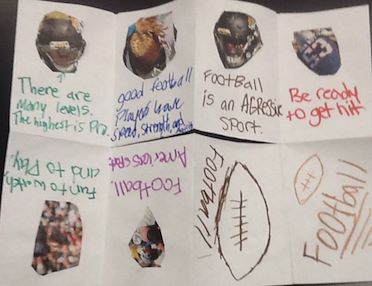 There are
Many levels.
The highest is Pro.
good football
Players have
speed, strength, and
FootBall
is an Agressiv
Sport.
Be ready
to get hit
fun to watch
and to Play
Football.
Americas sport
Football!
FOOtball